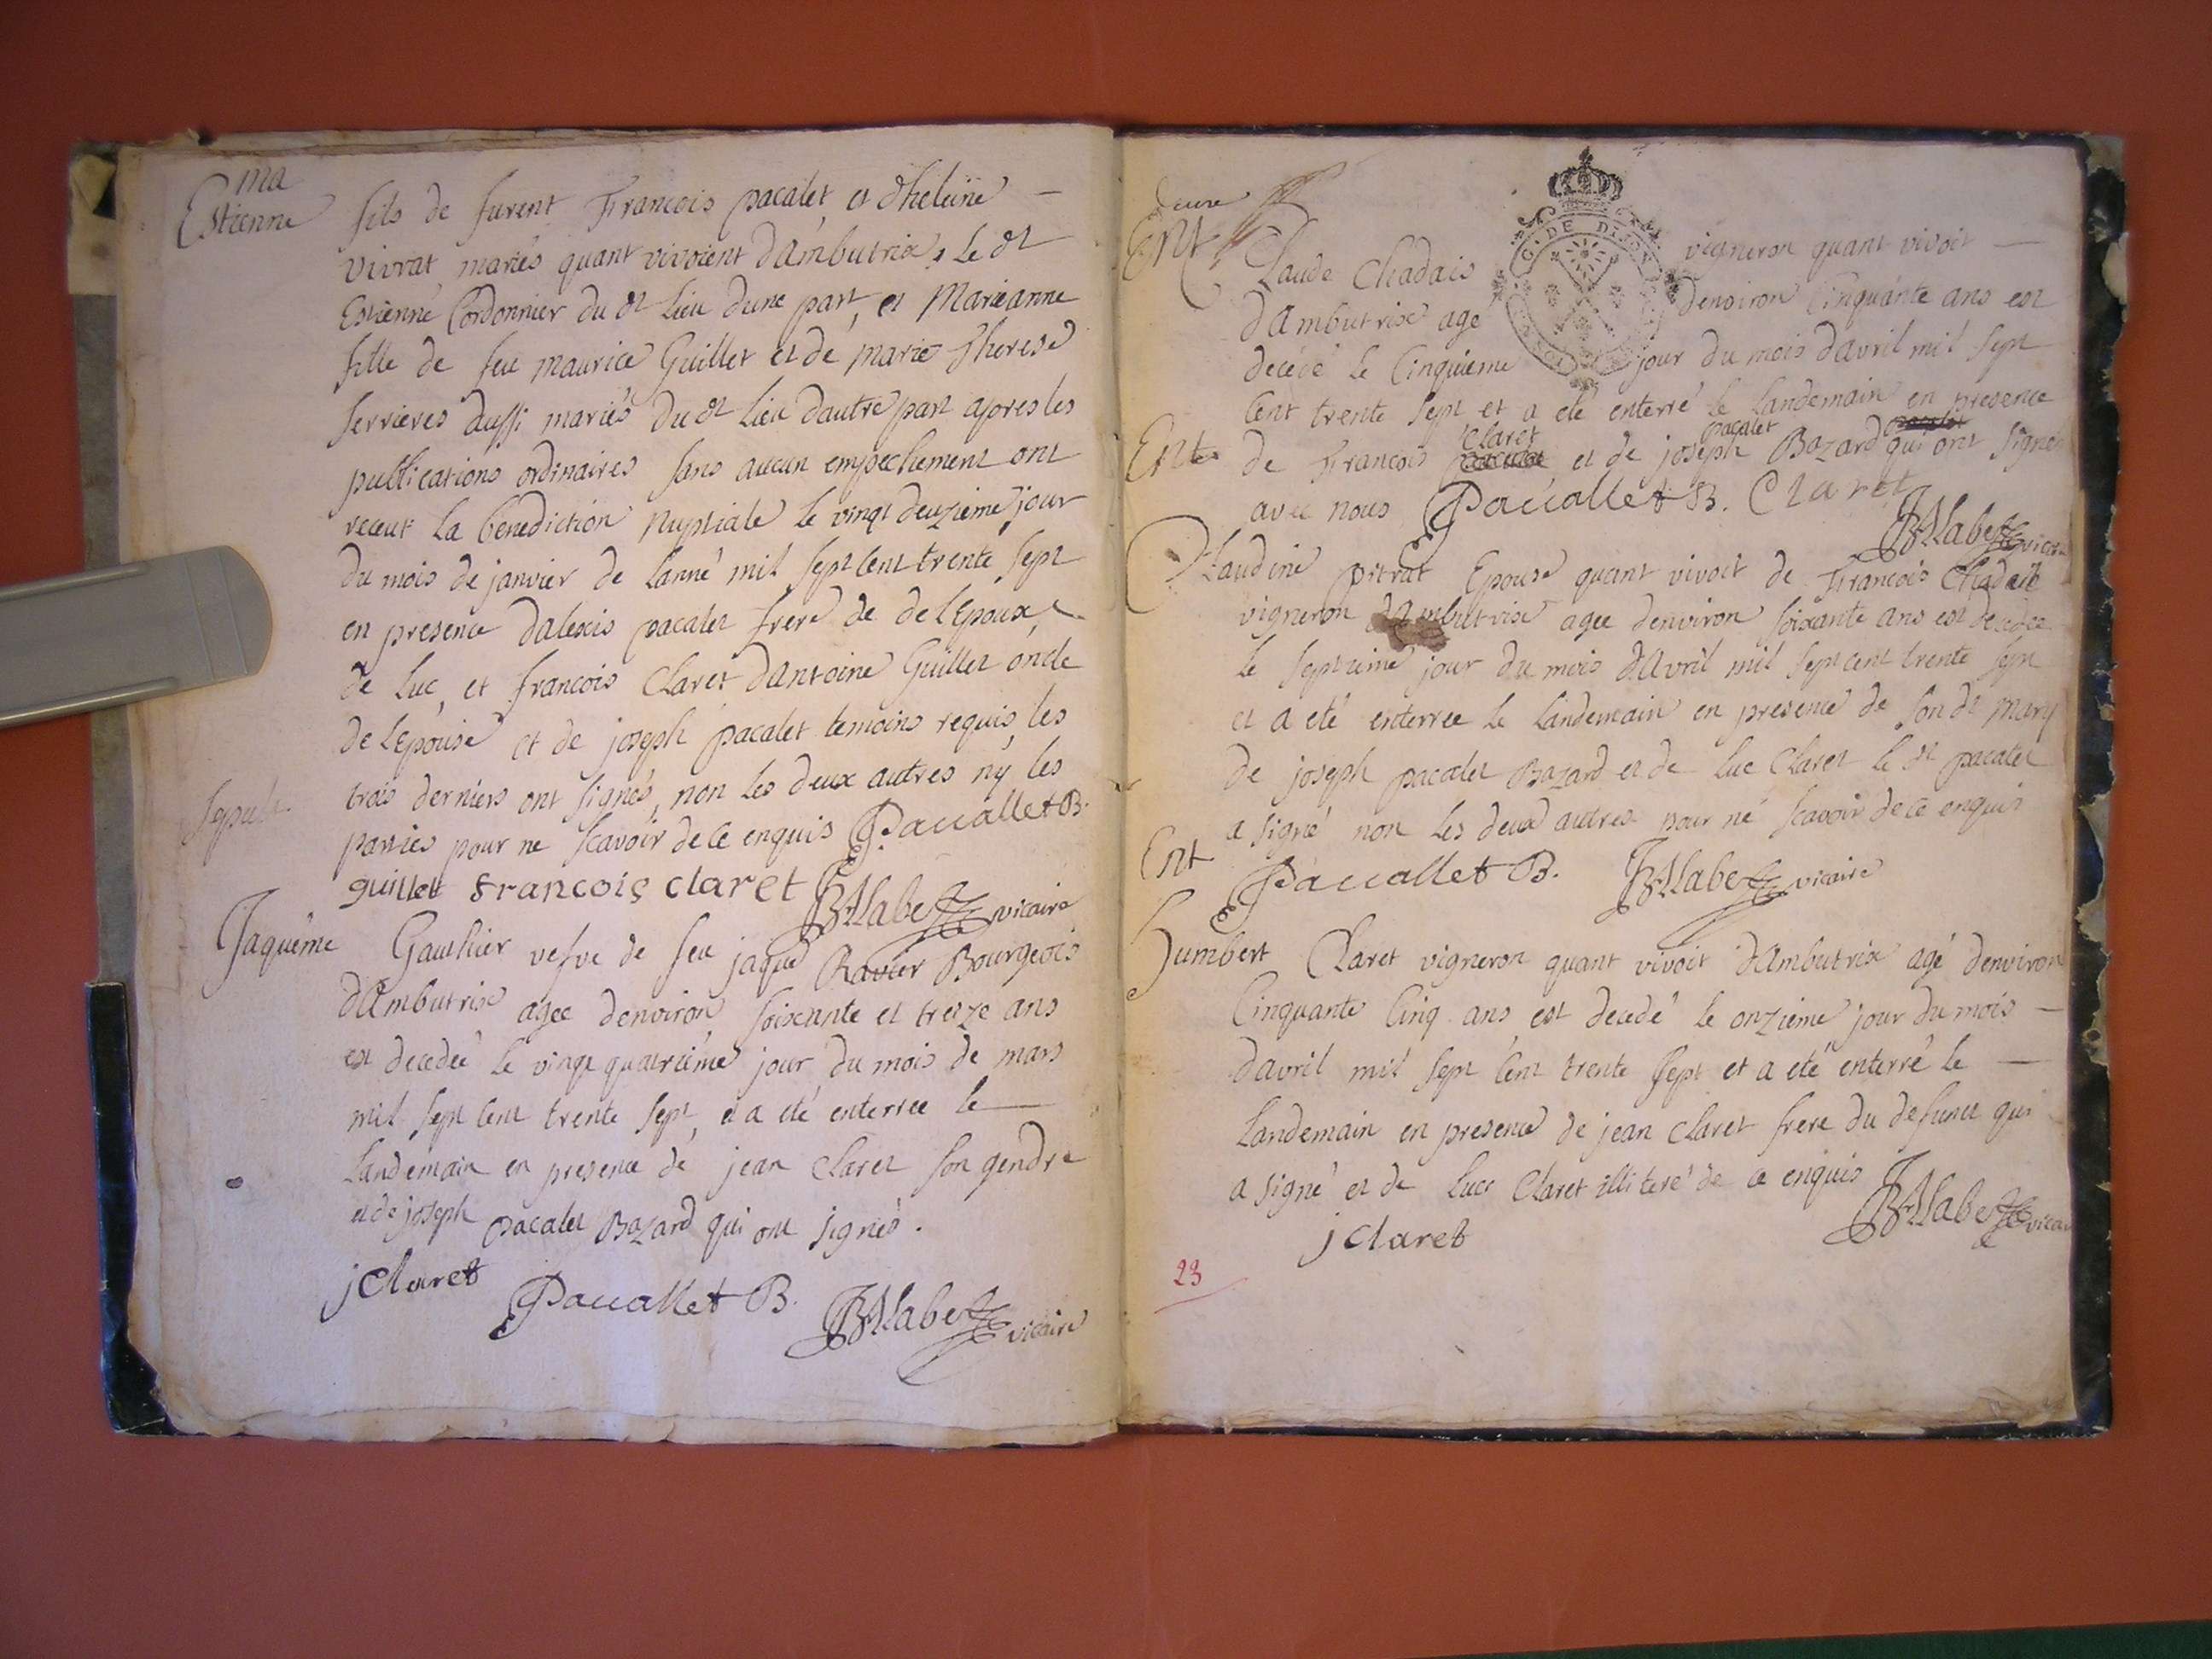 ma
Estienne fils de furent François pacalet et dheleine
vivrat mariés quant vivoient dambutrix, le dt
Estienne Cordonnier du dt lieu dune part, et Marieanne
fille de feu maurice Guillet et de marie therese
ferrieres aussi mariés du dt lieu dautre part apres les
publications ordinaires sans aucun empechement ont
receut la benediction nuptiale le vingt deuzieme jour
du mois de janvier de lanné mil sept cent trente sept
en presence dalexis pacalet frere de de lepoux
de luc, et francois Claret dantoine Guillet oncle
de lepouse et de joseph pacalet temoins requis, les
trois derniers ont signés, non les deux autres ny les
parties pour ne scavoir de ce enquis Paccallet B.
guillet francois claret vicaire
Sepult.
Jaqueme Gauthier vefve de feu jaque Ravier Bourgeois
dambutrix agee denviron soixante et treize ans
est decedeé le vingt quatrieme jour du mois de mars
mil sept cent trente sept, et a eté enterree le
landemain en presence de jean Claret son gendre
et de joseph pacalet Bazard qui ont signés.
j Claret Paccallet B. vicaire
Ent
Claude Chadais vigneron quant vivoit
G. DE DIJON
dambutrix agé denviron Cinquante ans est
decedé le Cinquieme jour du mois davril mil sept
cent trente sept et a eté enterré le landemain en presence
Ent de Francois Claret et de joseph pacalet Bazard qui ont signé
avec nous Paccallet B. Claret
vicaire
Claudine pitrat Epouse quant vivoit de Francois Chadais
vigneron dambutrix agee denviron soixante ans est decedee
le septieme jour du mois davril mil sept cent trente sept
et a eté enterree le landemain en presence de son dt mary
de joseph pacalet Bazard et de luc Claret le dt pacalet
a signé non les deux autres pour ne scavoir de ce enquis
Ent Paccallet B. vicaire
Humbert Claret vigneron quant vivoit dambutrix agé denviron
Cinquante Cinq ans est decedé le onzieme jour du mois
davril mil sept cent trente sept et a eté enterré le
landemain en presence de jean Claret frere du defunct qui
a signé et de Luce Claret illiteré de ce enquis
j Claret vicaire
23